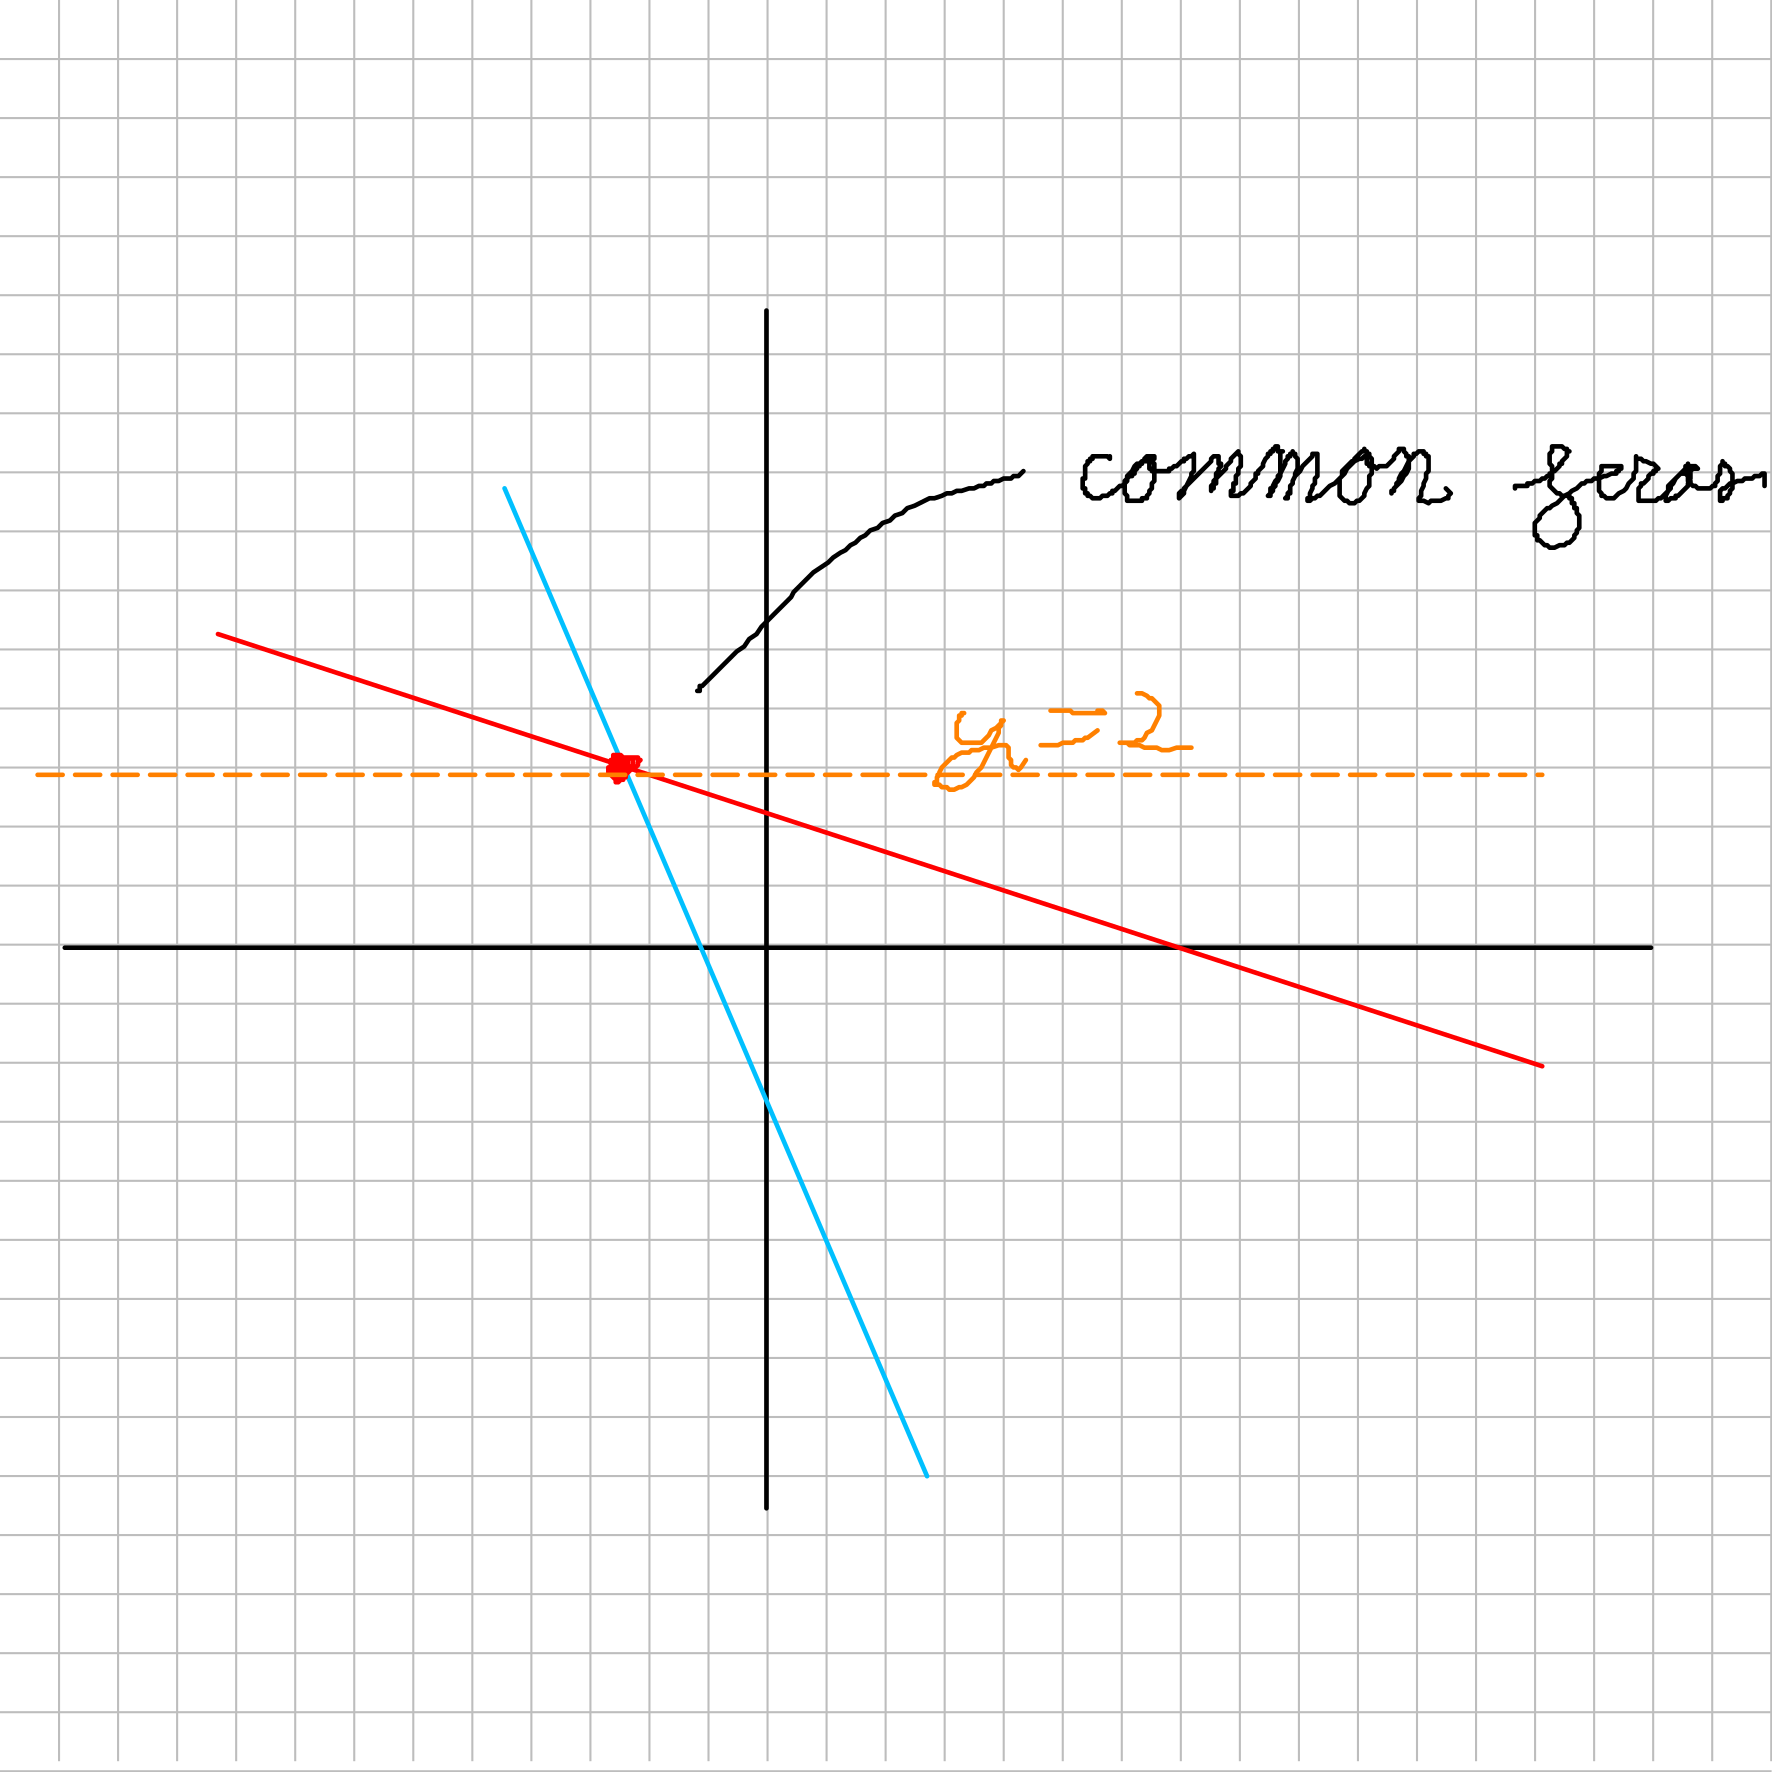 common zeros
y = 2